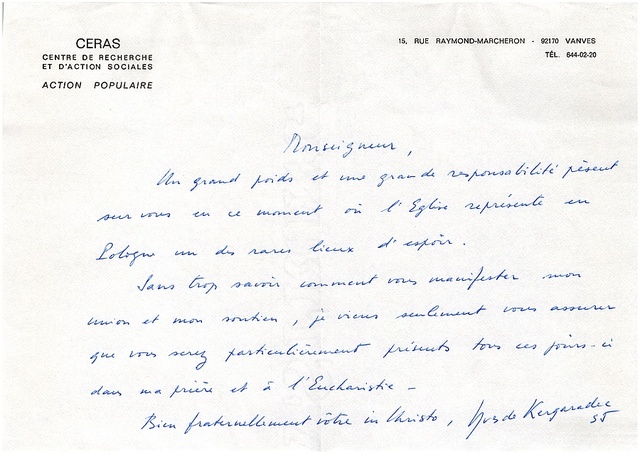 CERAS
CENTRE DE RECHERCHE
ET D'ACTION SOCIALES
ACTION POPULAIRE
15, RUE RAYMOND-MARCHERON - 92170 VANVES
TÉL. 644-02-20
Monseigneur,
Un grand poids et une grande responsabilité pèsent
sur vous en ce moment où l'Eglise représente en
Pologne un des rares lieux d'espoir.
Sans trop savoir comment vous manifester mon
union et mon soutien, je viens seulement vous assurer
que vous serez particulièrement présents tous ces jours-ci
dans ma prière et à l'Eucharistie -
Bien fraternellement vôtre in Christo, Yves de Kergaradec
sj